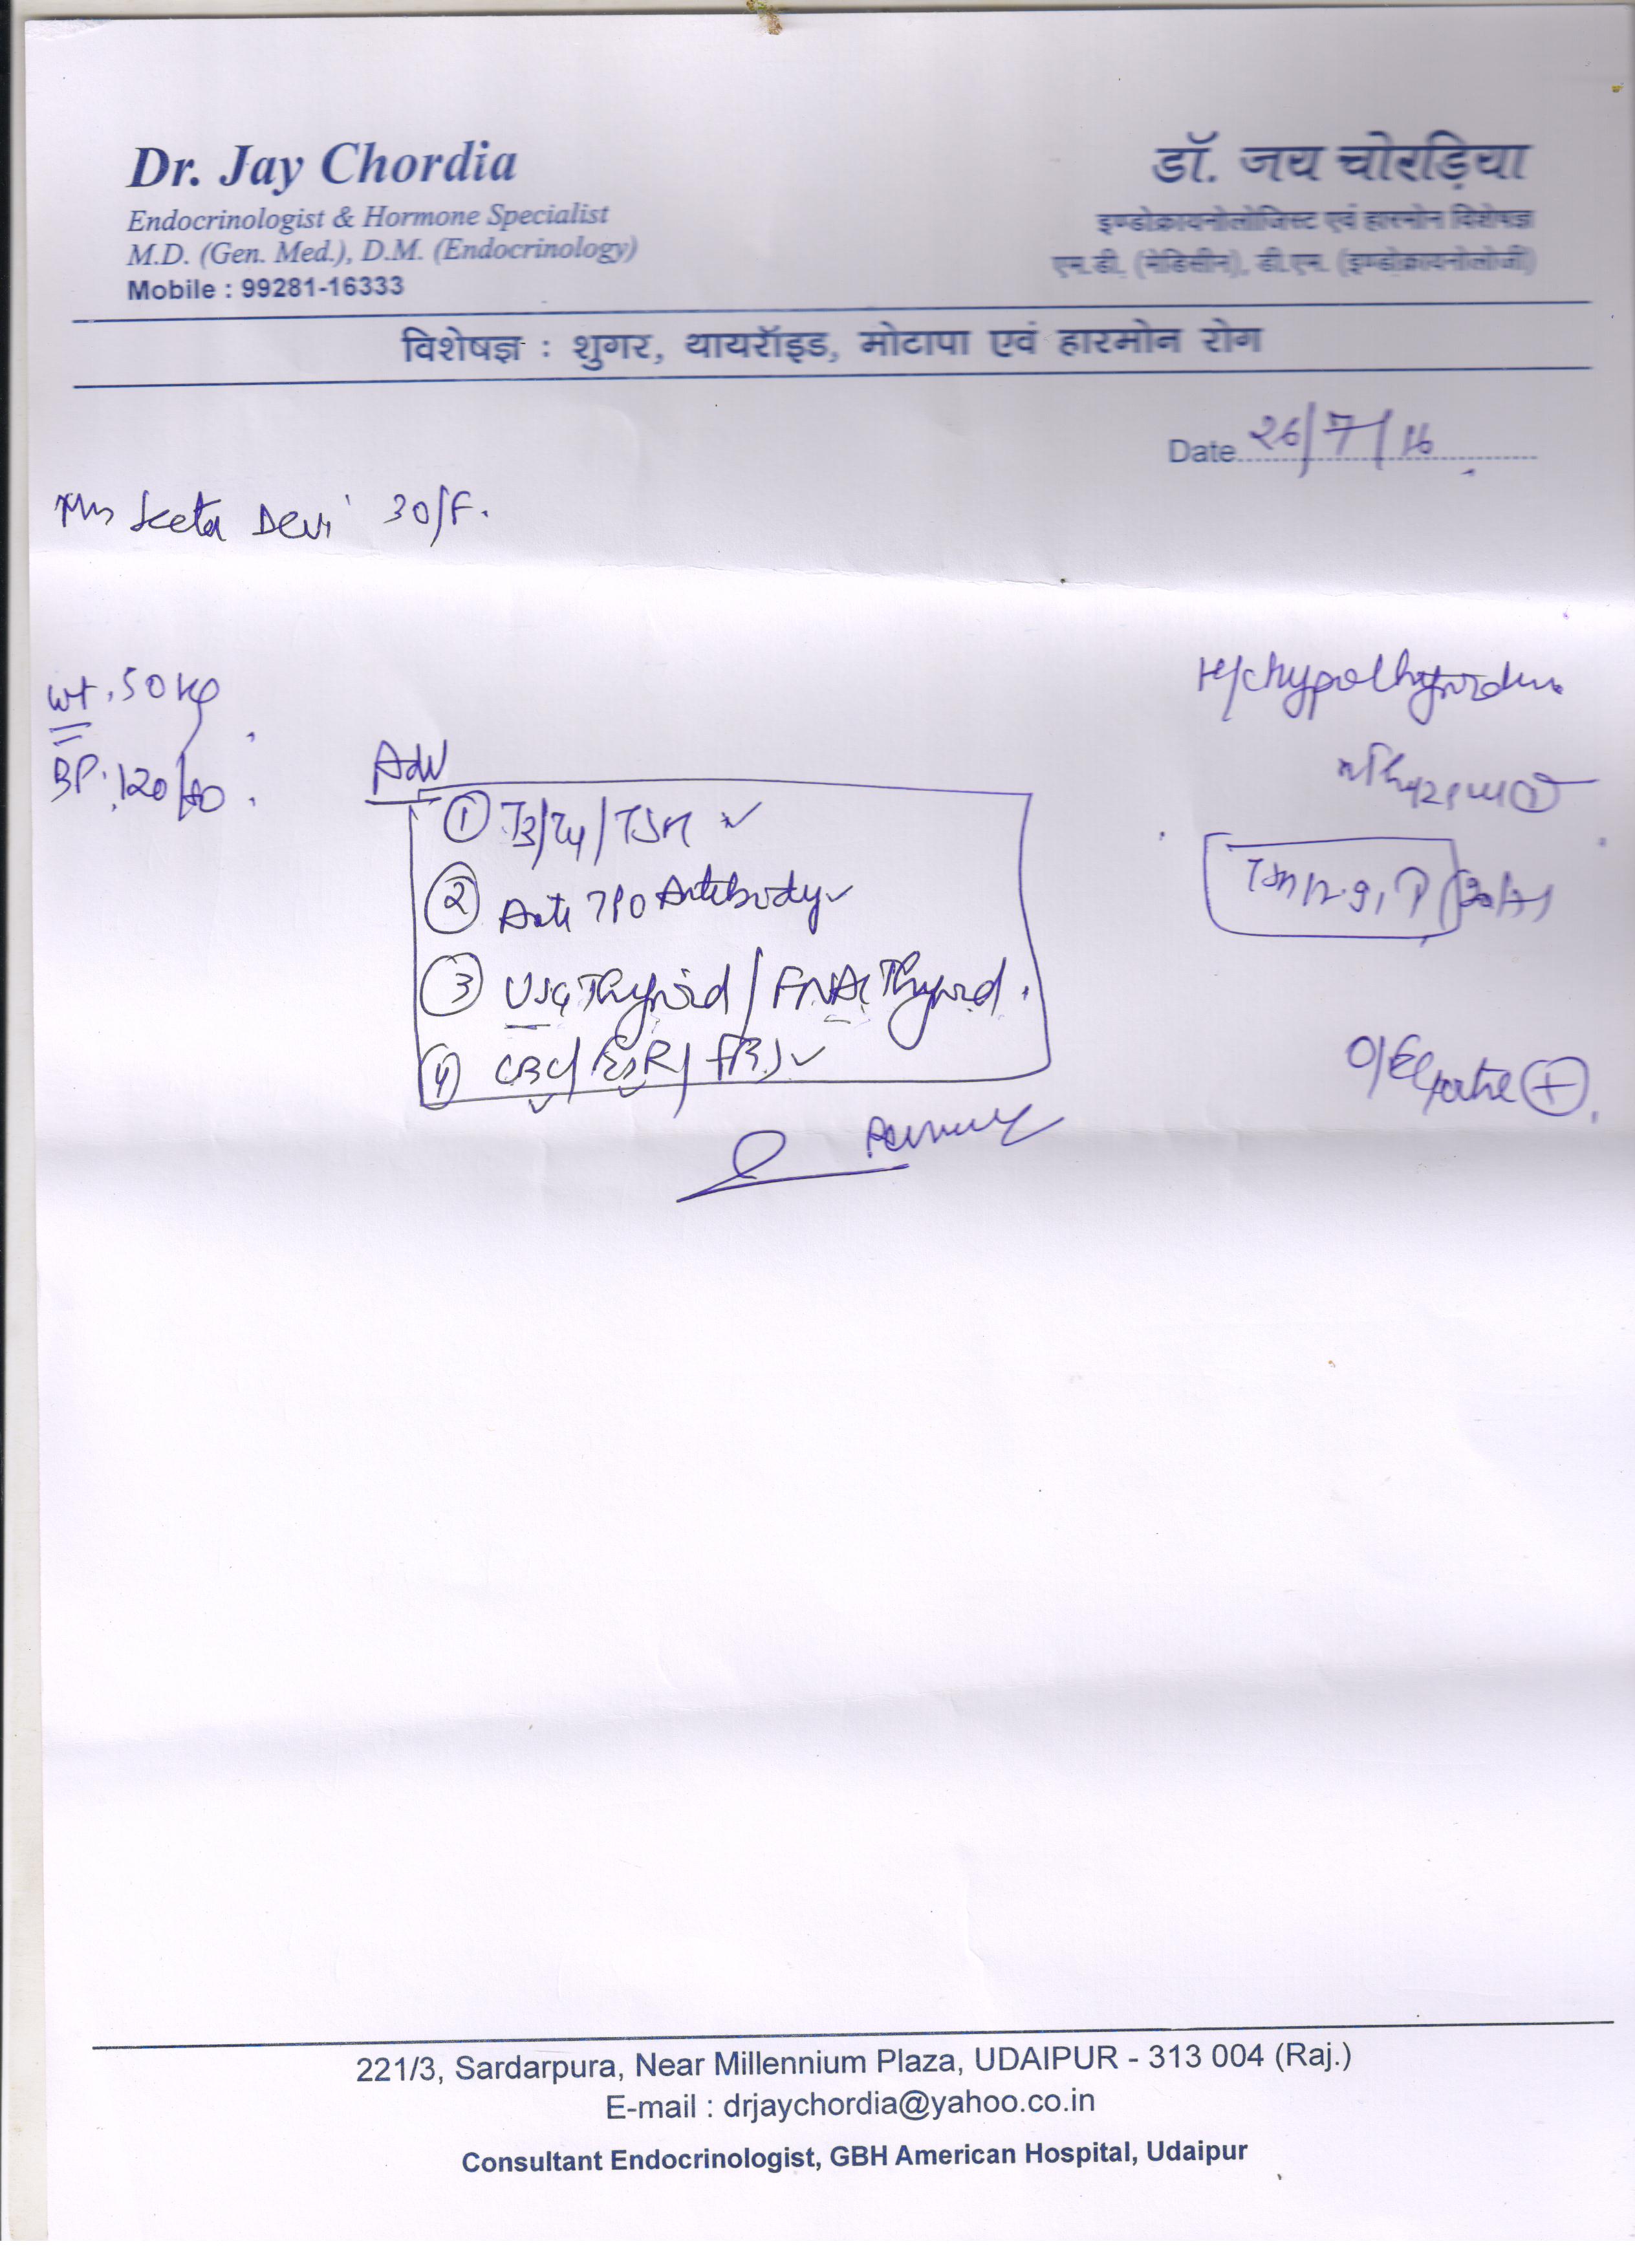 Dr. Jay Chordia
Endocrinologist & Hormone Specialist
M.D. (Gen. Med.), D.M. (Endocrinology)
Mobile : 99281-16333
डॉ. जय चोरड़िया
इण्डोक्रायनोलोजिस्ट एवं हारमोन विशेषज्ञ
एम.डी. (मेडिसीन), डी.एम. (इण्डोक्रायनोलोजी)
विशेषज्ञ : शुगर, थायरॉइड, मोटापा एवं हारमोन रोग
Date 26/7/16
Devi 30/F.
wt. 50 kg
BP. 120/80.
H/c hypothyroidism
TSH 12.9,
O/E Goitre +
Adv
① T3/T4/TSH ✓
② Anti TPO Antibody ✓
③ USG Thyroid / FNAC Thyroid.
④ CBC/ESR/FBS ✓
221/3, Sardarpura, Near Millennium Plaza, UDAIPUR - 313 004 (Raj.)
E-mail : drjaychordia@yahoo.co.in
Consultant Endocrinologist, GBH American Hospital, Udaipur